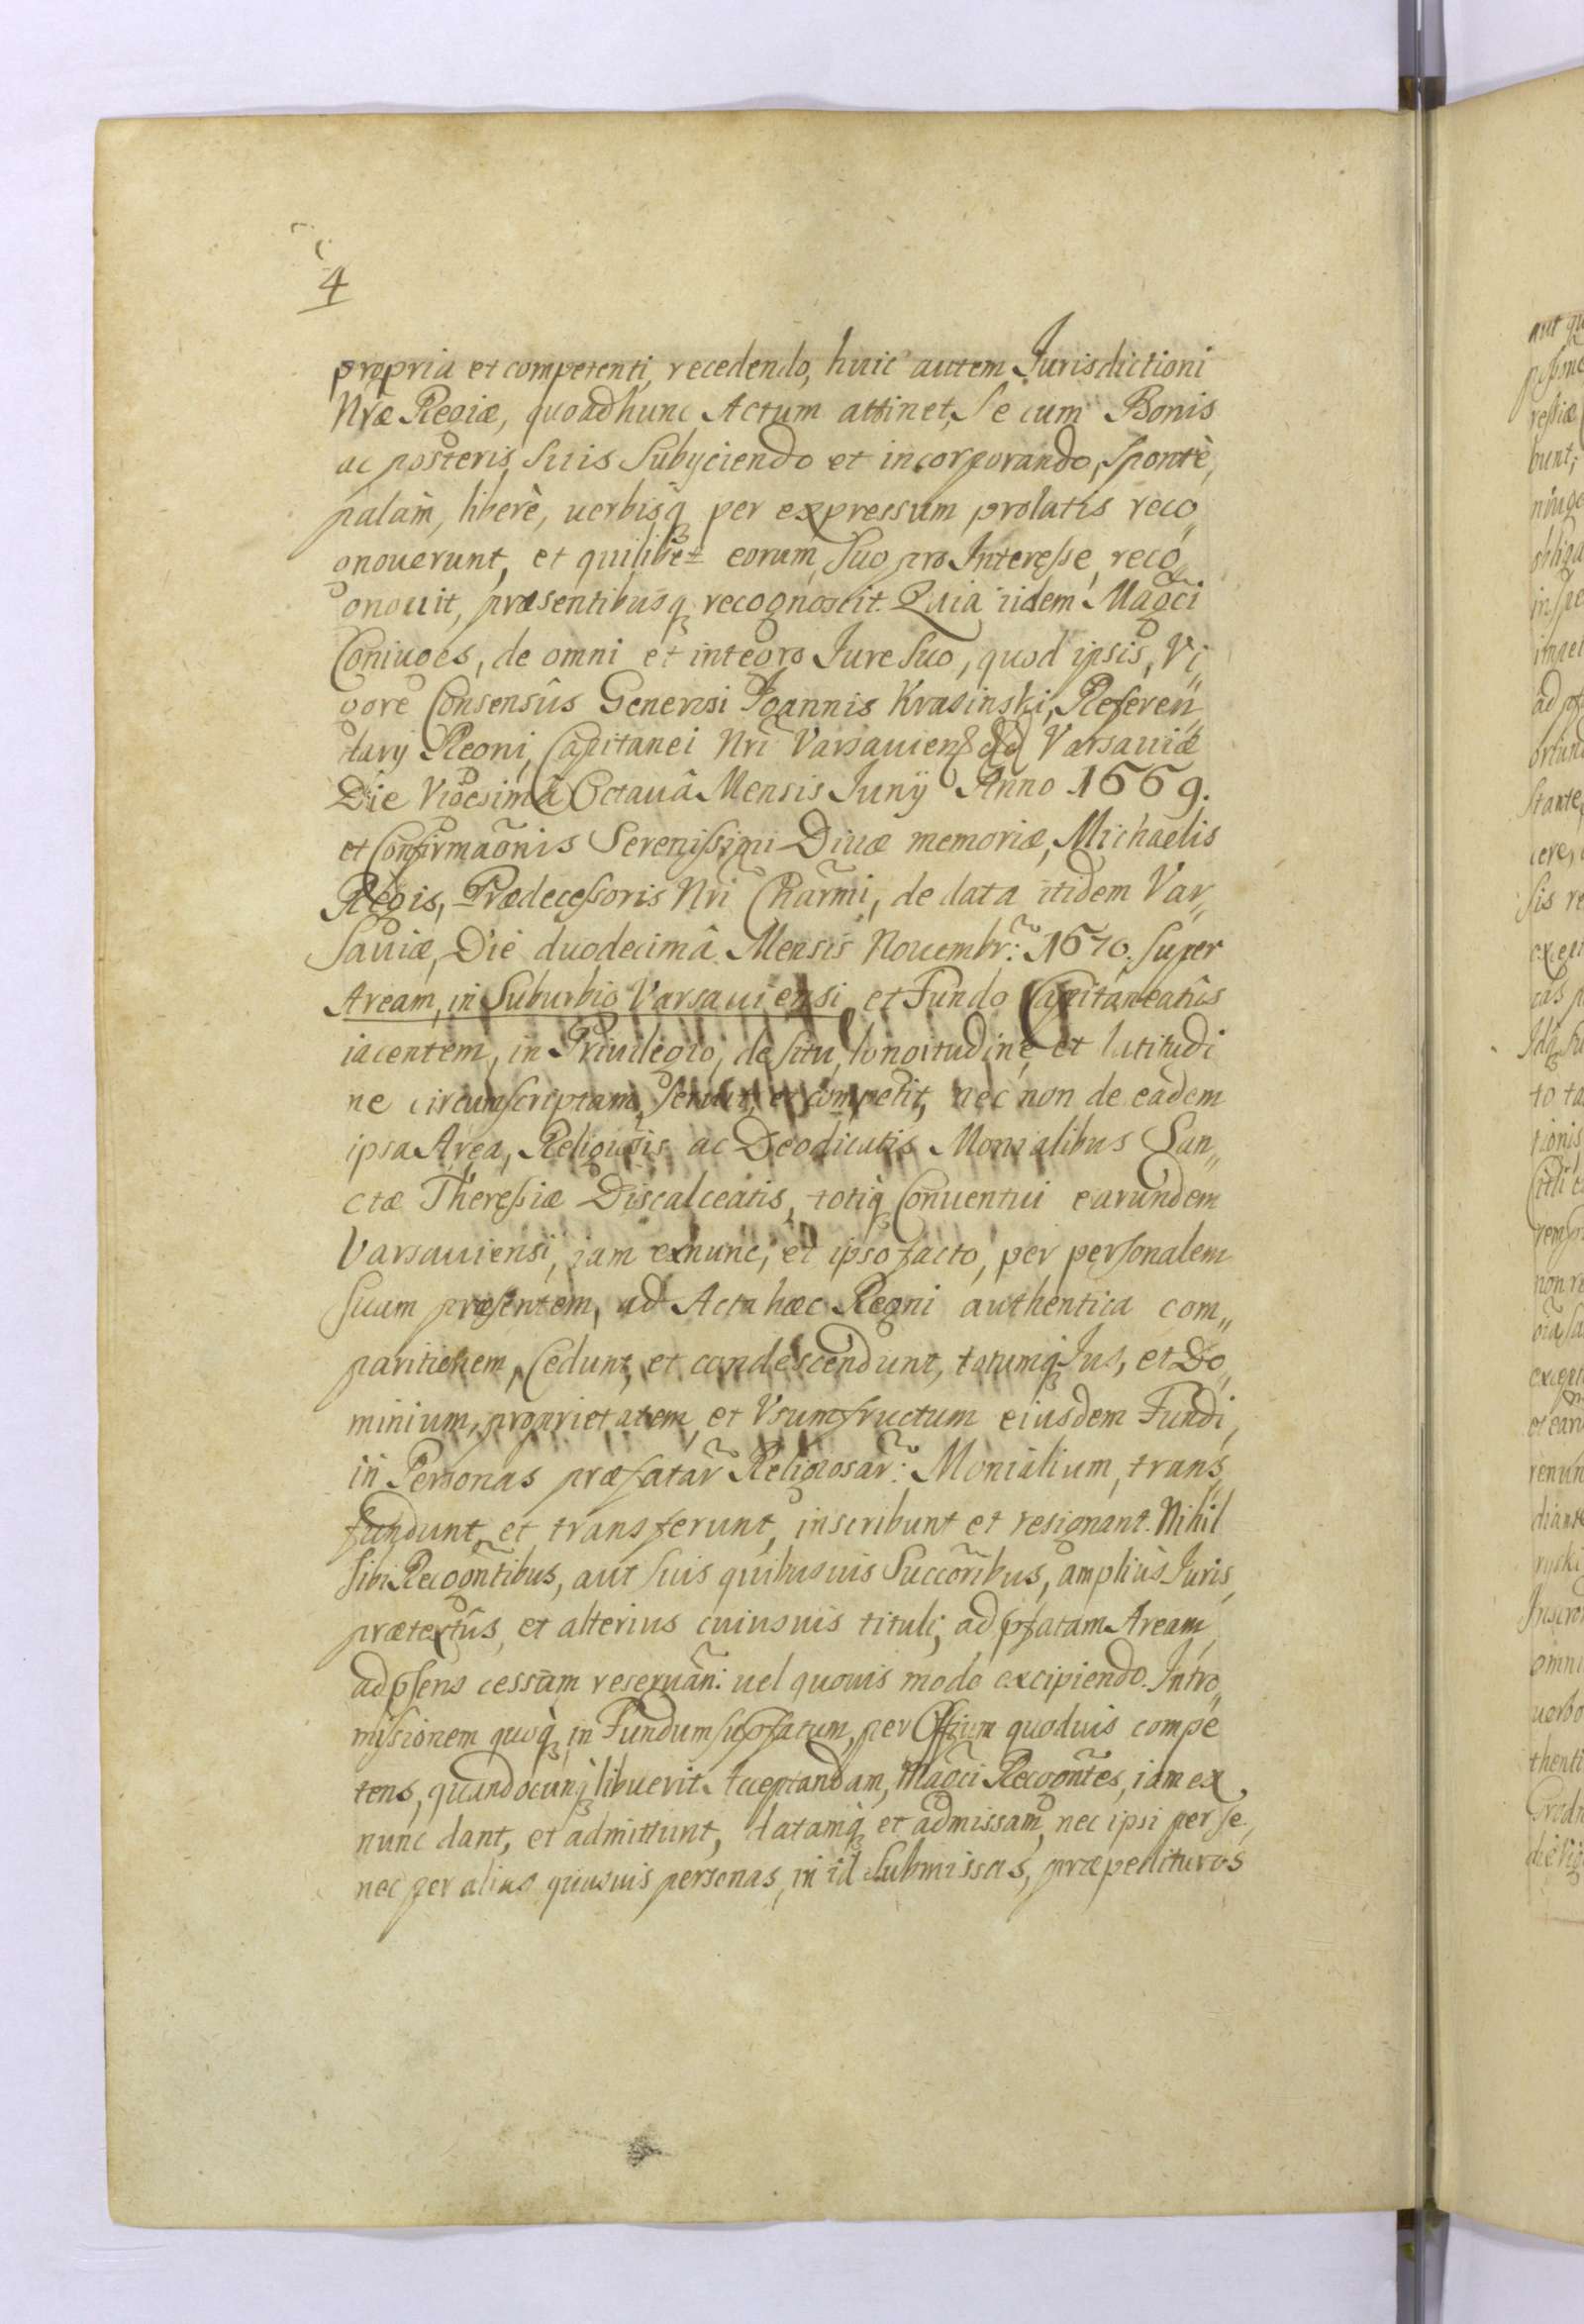 4
propria et competenti, recedendo, huic autem Jurisdictioni
Nr̃æ Regiæ, quoad hunc Actum attinet, Se cum Bonis
ac posteris Suis Subÿciendo et incorporando, Spontè,
palàm, liberè, uerbisq̃ per expressum prolatis reco„
gnouerunt, et quilibet eorum, Suo pro Interesse, reco„
gnouit, præsentibusq̃ recognoscit. Quia iidem Mag̃ci
Coniuges, de omni et integro Jure Suo, quod ipsis, Vi„
gore Consensûs Generosi Joannis Krasinski, Referen„
darÿ Regni, Capitanei Nr̃i Varsauien̄ dd Varsauiæ
Die Vigesimâ Octauâ Mensis Junÿ Anno 1669.
et Confirmaõnis Serenissimi Diuæ memoriæ, Michaelis
Regis, Prædecessoris Nr̃i Charm̃i, de data itidem Var„
sauiæ, Die duodecimâ Mensis Nouembr̃: 1670. Super
Aream, in Suburbio Varsauiensi, et Fundo Capitaneatûs
iacentem, in Priuilegio, de situ, longitudine, et latitudi
ne circumscriptam, seruit, et competit, nec non de eadem
ipsa Area, Religiosis ac Deodicatis Monialibus San„
ctæ Theressiæ Discalceatis, totiq̃ Conuentui earundem
Varsauiensi, iam exnunc, et ipso facto, per personalem
Suam præsentem, ad Acta hæc Regni authentica com„
paritionem, Cedunt, et condescendunt, totumq̃ Jus, et Do„
minium, proprietatem, et Vsumfructum eiusdem Fundi,
in Personas præfatar̃ Religiosar̃: Monialium, trans„
fundunt, et transferunt, inscribunt et resignant. Nihil
Sibi Recogñtibus, aut Suis quibusuis Succor̃ibus, ampliùs Juris,
prætextûs, et alterius cuiusuis tituli, ad p̃fatam Aream,
ad p̃sens cessam reseruañ: uel quouis modo excipiendo. Intro„
missionem quoq̃ in Fundum sup̃fatum, per Offium quoduis compe
tens, quandocunq̃ libuerit. Acceptandam, Mag̃ci Recogñtes, iam ex
nunc dant, et admittunt, datamq̃ et admissam, nec ipsi per se,
nec per alias quasuis personas, in id Submissas, præpedituros